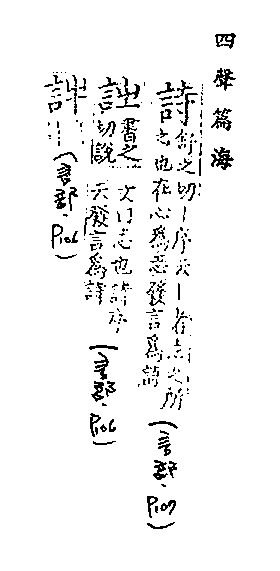 四聲篇海
詩舒之切丨序云丨者志之所之也在心為志發言為詩(言部.P107)
𧥳書之切說文曰志也詩序云發言為詩(言部.P106)
(言部.P106)